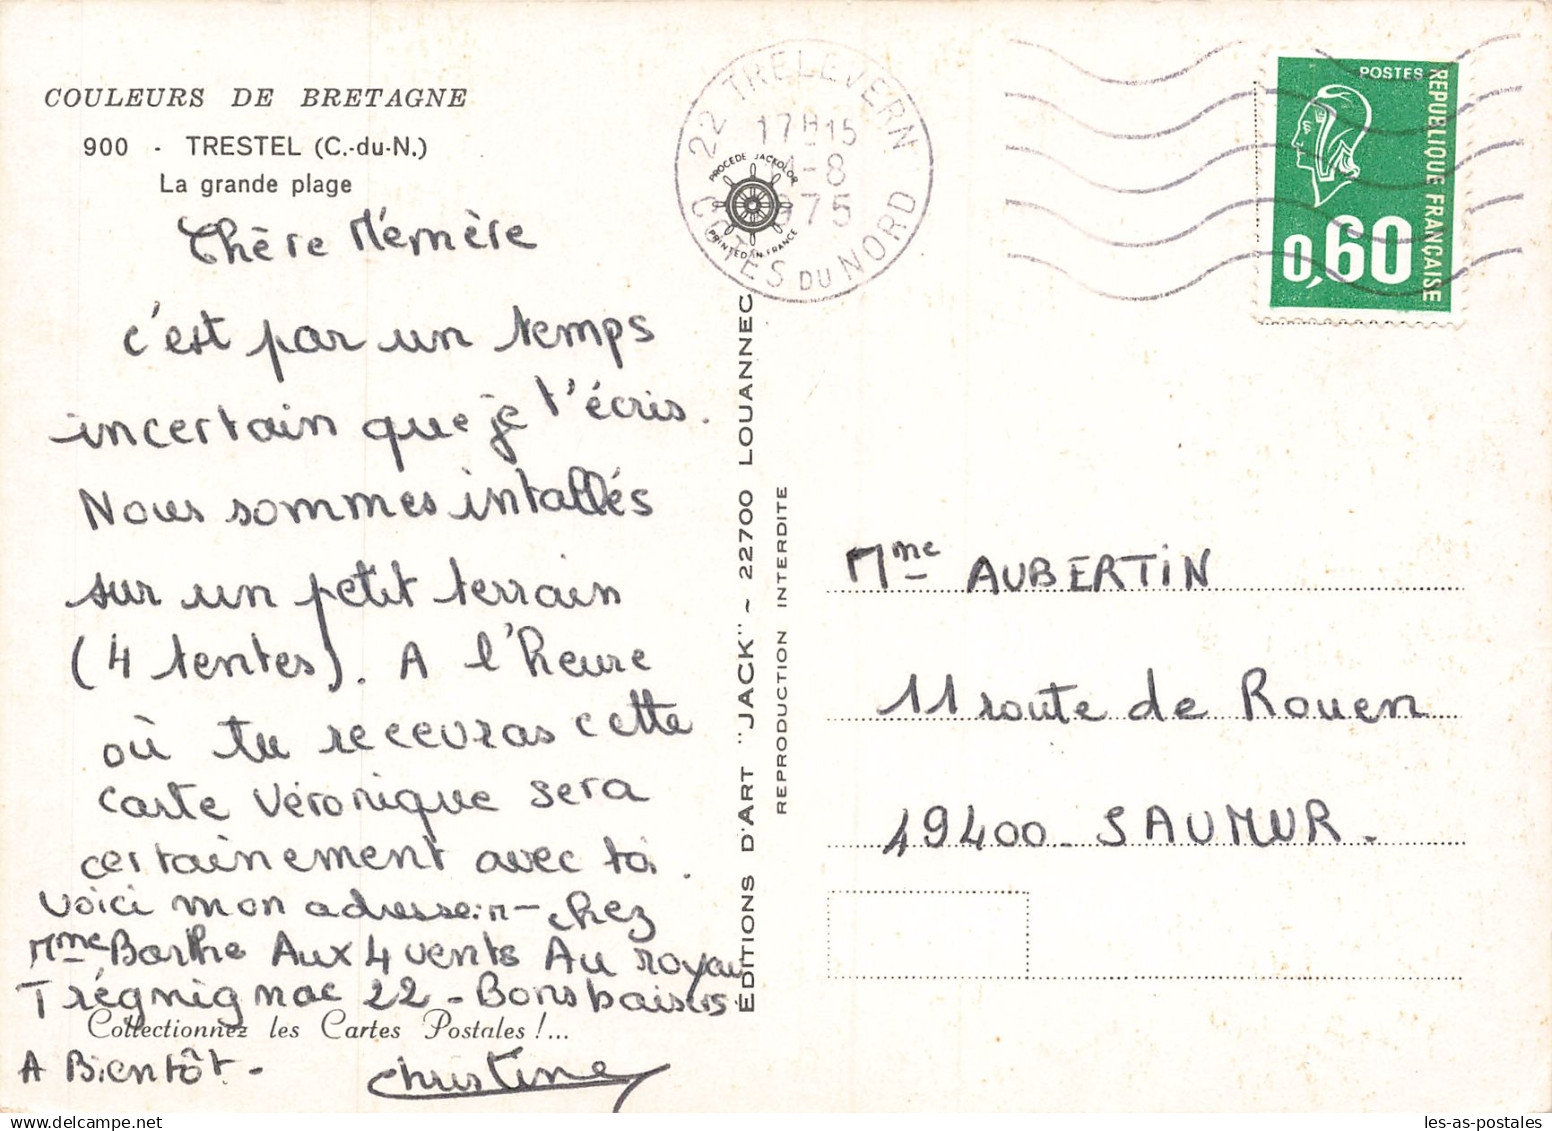 COULEURS DE BRETAGNE
900 - TRESTEL (C.-du-N.)
La grande plage
Chère Mémère
c'est par un temps
incertain que je t'écris.
Nous sommes intallés
sur un petit terrain
(4 tentes). A l'heure
où tu recevras cette
carte Véronique sera
certainement avec toi.
Voici mon adresse:n- chez
Mme Barthe Aux 4 vents Au royau
Trégnignac 22 - Bons baisers
Collectionnez les Cartes Postales !...
A Bientôt -
Christine
ÉDITIONS D'ART "JACK" ~ 22700 LOUANNEC
REPRODUCTION INTERDITE
PROCEDE JACKOLOR
PRINTED IN FRANCE
22 TRELEVERN
17H15
-8
975
COTES DU NORD
POSTES
REPUBLIQUE FRANÇAISE
0,60
Mme AUBERTIN
11 route de Rouen
49400 - SAUMUR -
les-as-postales